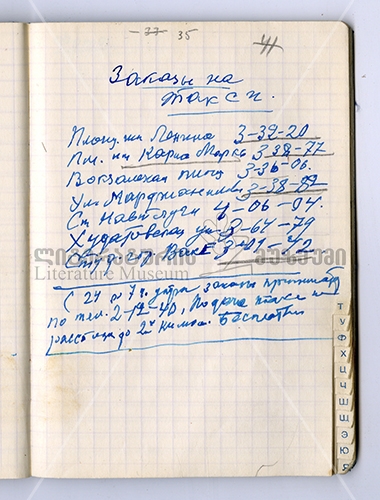 -33- 35
41
Заказы на
такси.
Площ. им Ленина 3-32-20
Пл. им Карла Маркса 3-38-77
Вокзальная площ 3-36-06.
Ул. Марджанишвили 3-38-82
Ст. Навтлуги 4-06-04.
Худатовская ул. 3-64-79
3-01-42
ლიტერატურის მუზეუმი
Literature Museum
С 24 до 7 ч. утра заказы принимают
по тел. 2-12-40, Подача такси на
расстоян до 2х килом. бесплатно
Т
У
Ф
Х
Ц
Ч
Ш
Щ
Э
Ю
Я